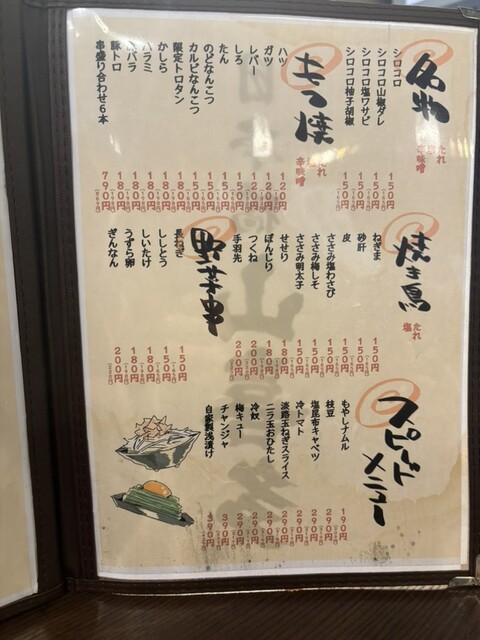 名物
たれ
塩
辛味噌
シロコロ 150円
シロコロ山椒ダレ 150円
シロコロ塩ワサビ 150円
シロコロ柚子胡椒 150円
もつ焼
たれ
塩
辛味噌
ハツ 120円
ガツ 120円
レバー 120円
しろ 150円
たん 150円
のどなんこつ 150円
カルビなんこつ 150円
限定トロタン 180円
かしら 180円
ハラミ 180円
豚バラ 180円
豚トロ 180円
串盛り合わせ6本 790円
焼き鳥
たれ
塩
ねぎま 150円
砂肝 150円
皮 150円
ささみ塩わさび 150円
ささみ梅しそ 150円
ささみ明太子 150円
せせり 180円
ぼんじり 180円
つくね 200円
手羽先 200円
野菜串
長ねぎ 150円
ししとう 150円
しいたけ 180円
うずら卵 180円
ぎんなん 200円
スピードメニュー
もやしナムル 190円
枝豆 290円
塩昆布キャベツ 290円
冷トマト 290円
淡路玉ねぎスライス 290円
ニラ玉おひたし 290円
冷奴 290円
梅キュー 290円
チャンジャ 390円
自家製浅漬け 390円